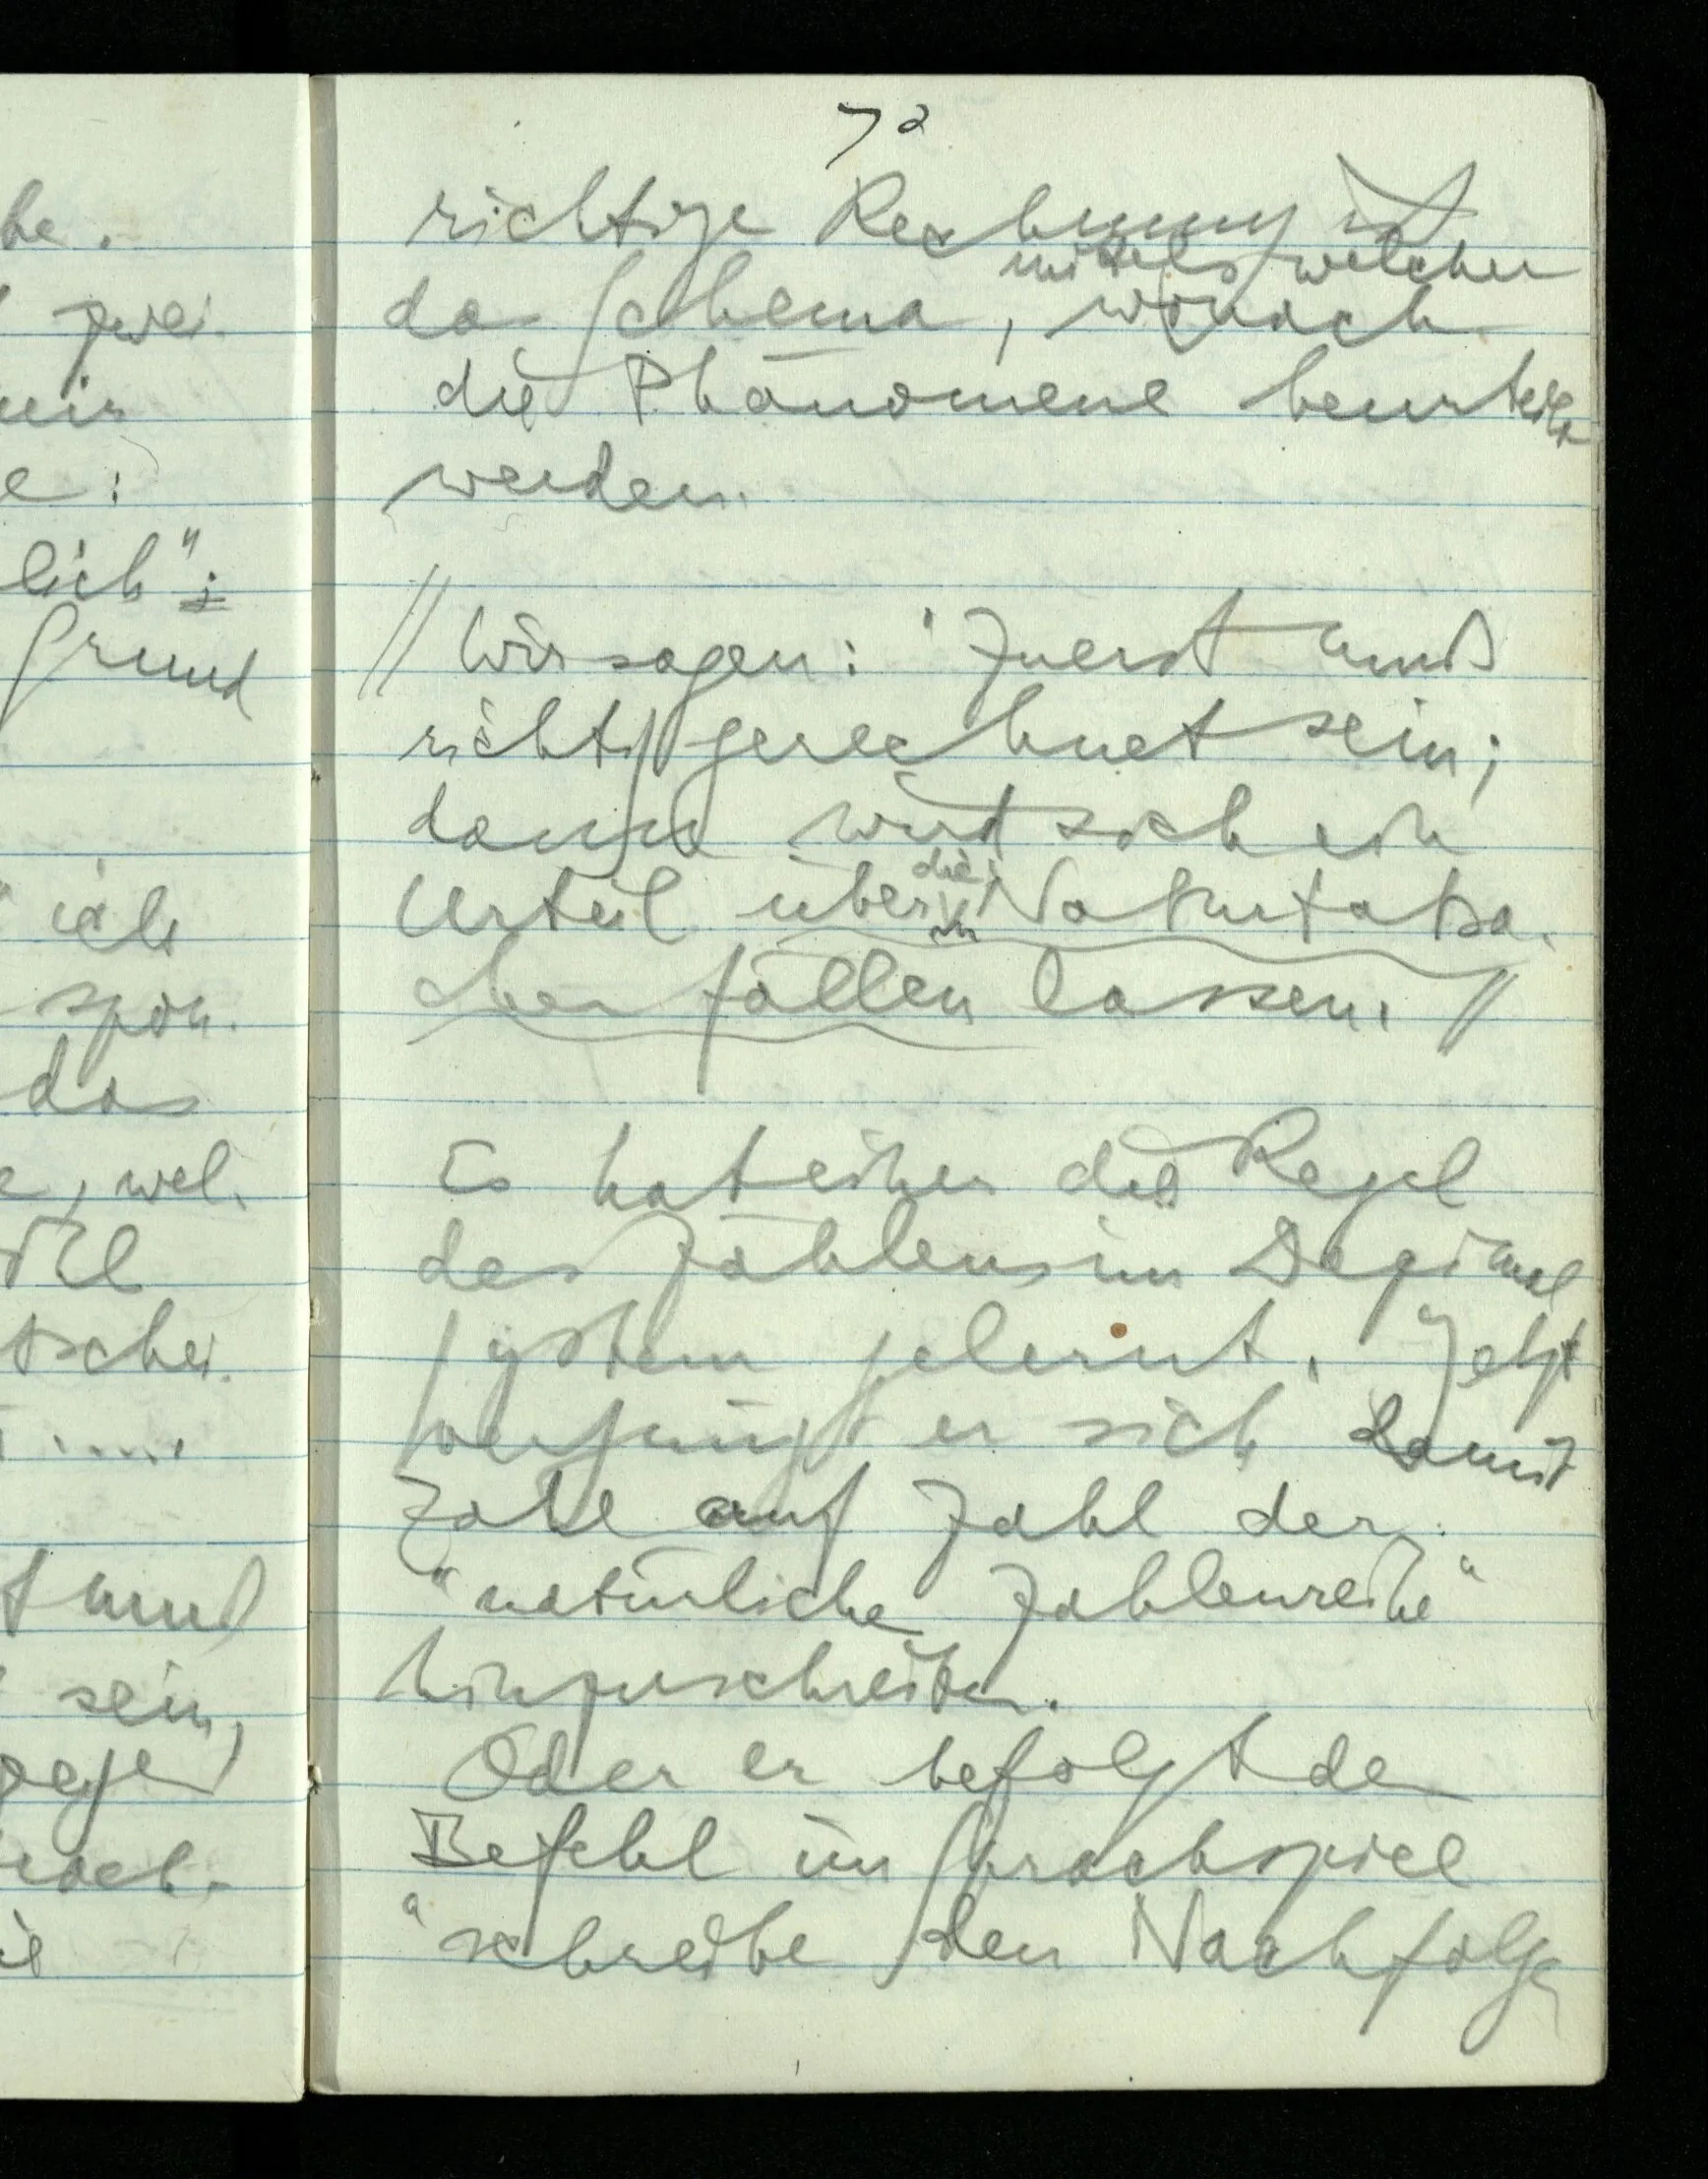 be.
zwei
wir
e:
lich";
Grund
ich
spon-
das
e, wel-
tschei-
.....
t muß
sein,
gegen
nach-
72
richtige Rechnung ist
mittels welcher
das Schema, wonach
die Phänomene beurteilt
werden.
// Wir sagen: "Zuerst muß
richtig gerechnet sein;
dann wird sich ein
die
Urteil über Naturtatsa-
chen fällen lassen. //
Es hat einer die Regel
des Zählens im Dezimal
system gelernt. Jetzt
vergnügt er sich damit
Zahl auf Zahl der
"natürliche Zahlenreihe"
hinzuschreiben.
Oder er befolgt den
Befehl im Sprachspiel
"schreibe den Nachfolger